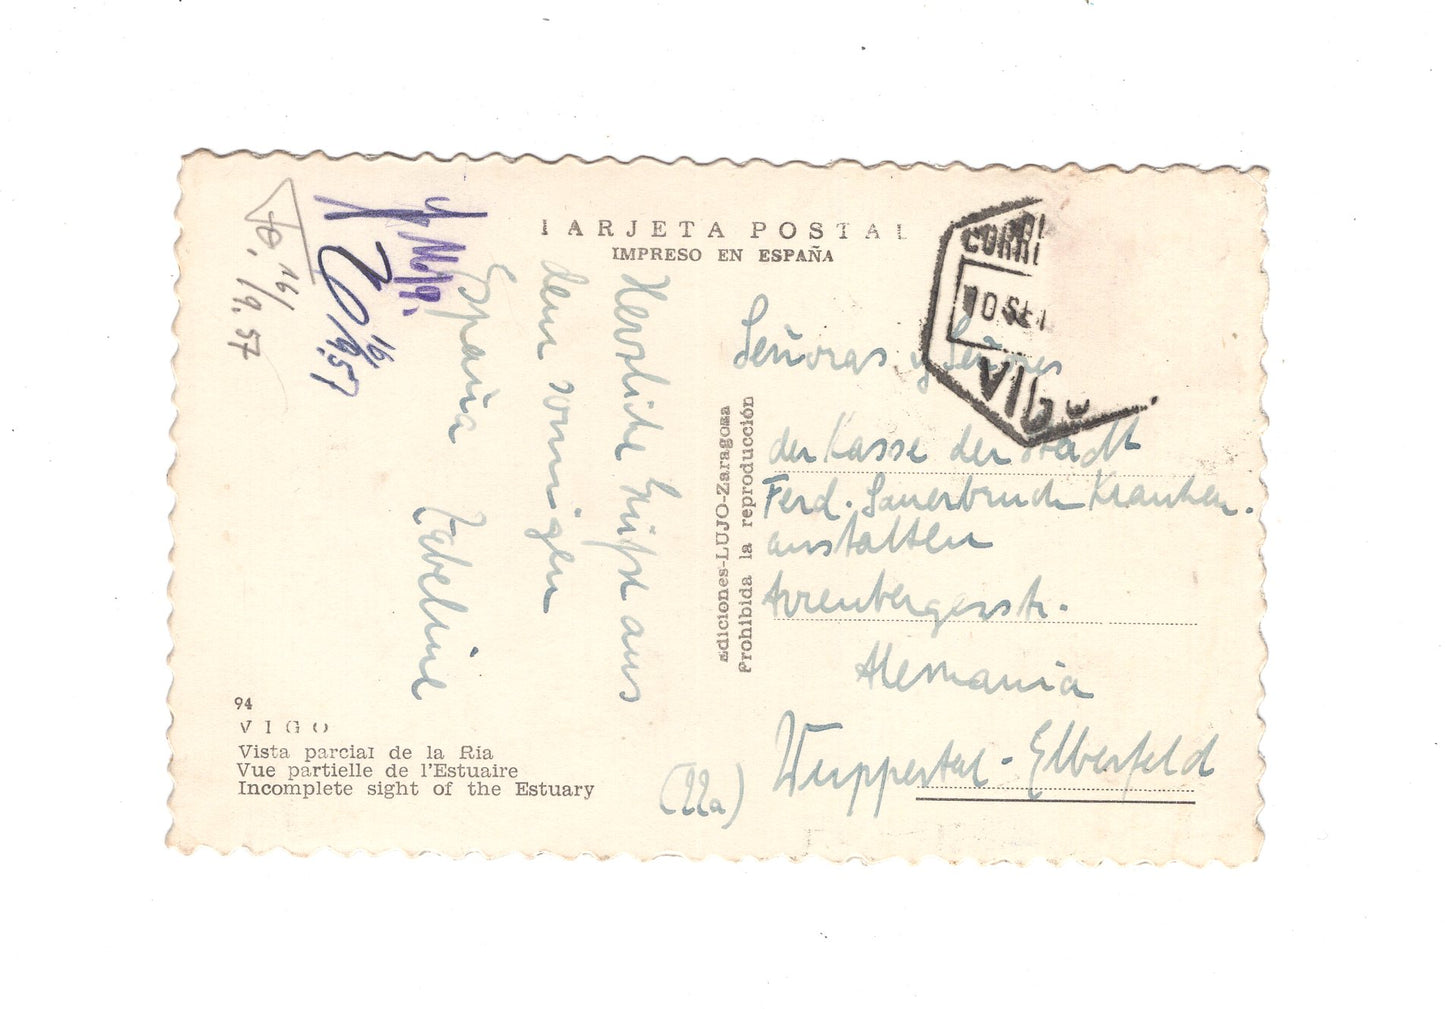 TARJETA POSTAL
IMPRESO EN ESPAÑA
Herzliche Grüße aus
dem sonnigen
España
Zabeline
Señoras y Señores
der Kasse der Stadt
Ferd. Sauerbruch Kranken-
anstalten
Arrenbergerstr.
Alemania
(22a) Wuppertal-Elberfeld
Ediciones-LUJO-Zaragoza
Prohibida la reproducción
CORRE
10 SE
VIG
16/9.57
16/9.57
94
VIGO
Vista parcial de la Ria
Vue partielle de l'Estuaire
Incomplete sight of the Estuary